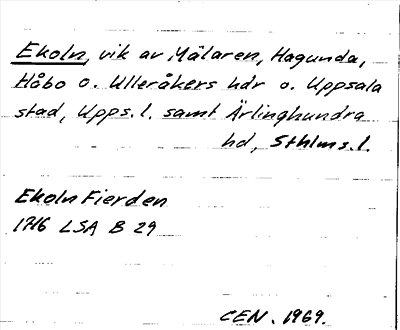 Ekoln, vik av Mälaren, Hagunda,
Håbo o. Ulleråkers hdr o. Uppsala
stad, Upps. l. samt Ärlinghundra
hd, Sthlms. l.
Ekoln Fierden
1716 LSA B 29
CEN. 1969.